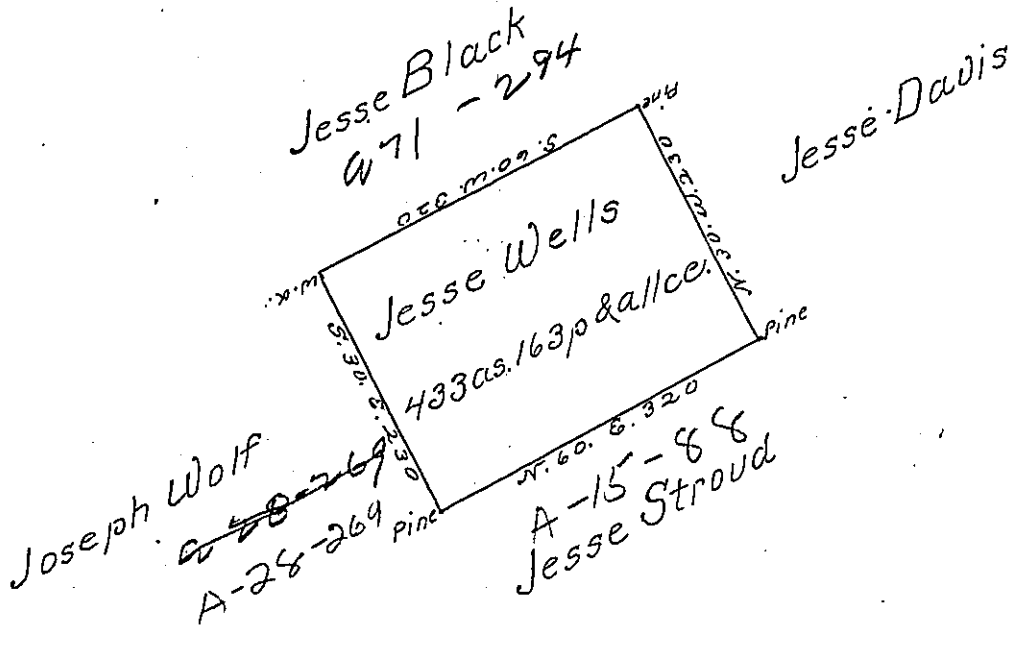 Jesse Black
a 71-294
Jesse Davis
Pine
S. 60. W. 320
N. 30. W. 230
W.K.
Jesse Wells
433 as. 163 p & allce.
S. 30. E. 230
Pine
N. 60. E. 320
Pine
Joseph Wolf
A-28-269
A-15-88
Jesse Stroud